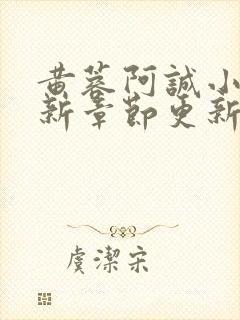 黄蓉阿誠小
新章節更新
虞潔宋